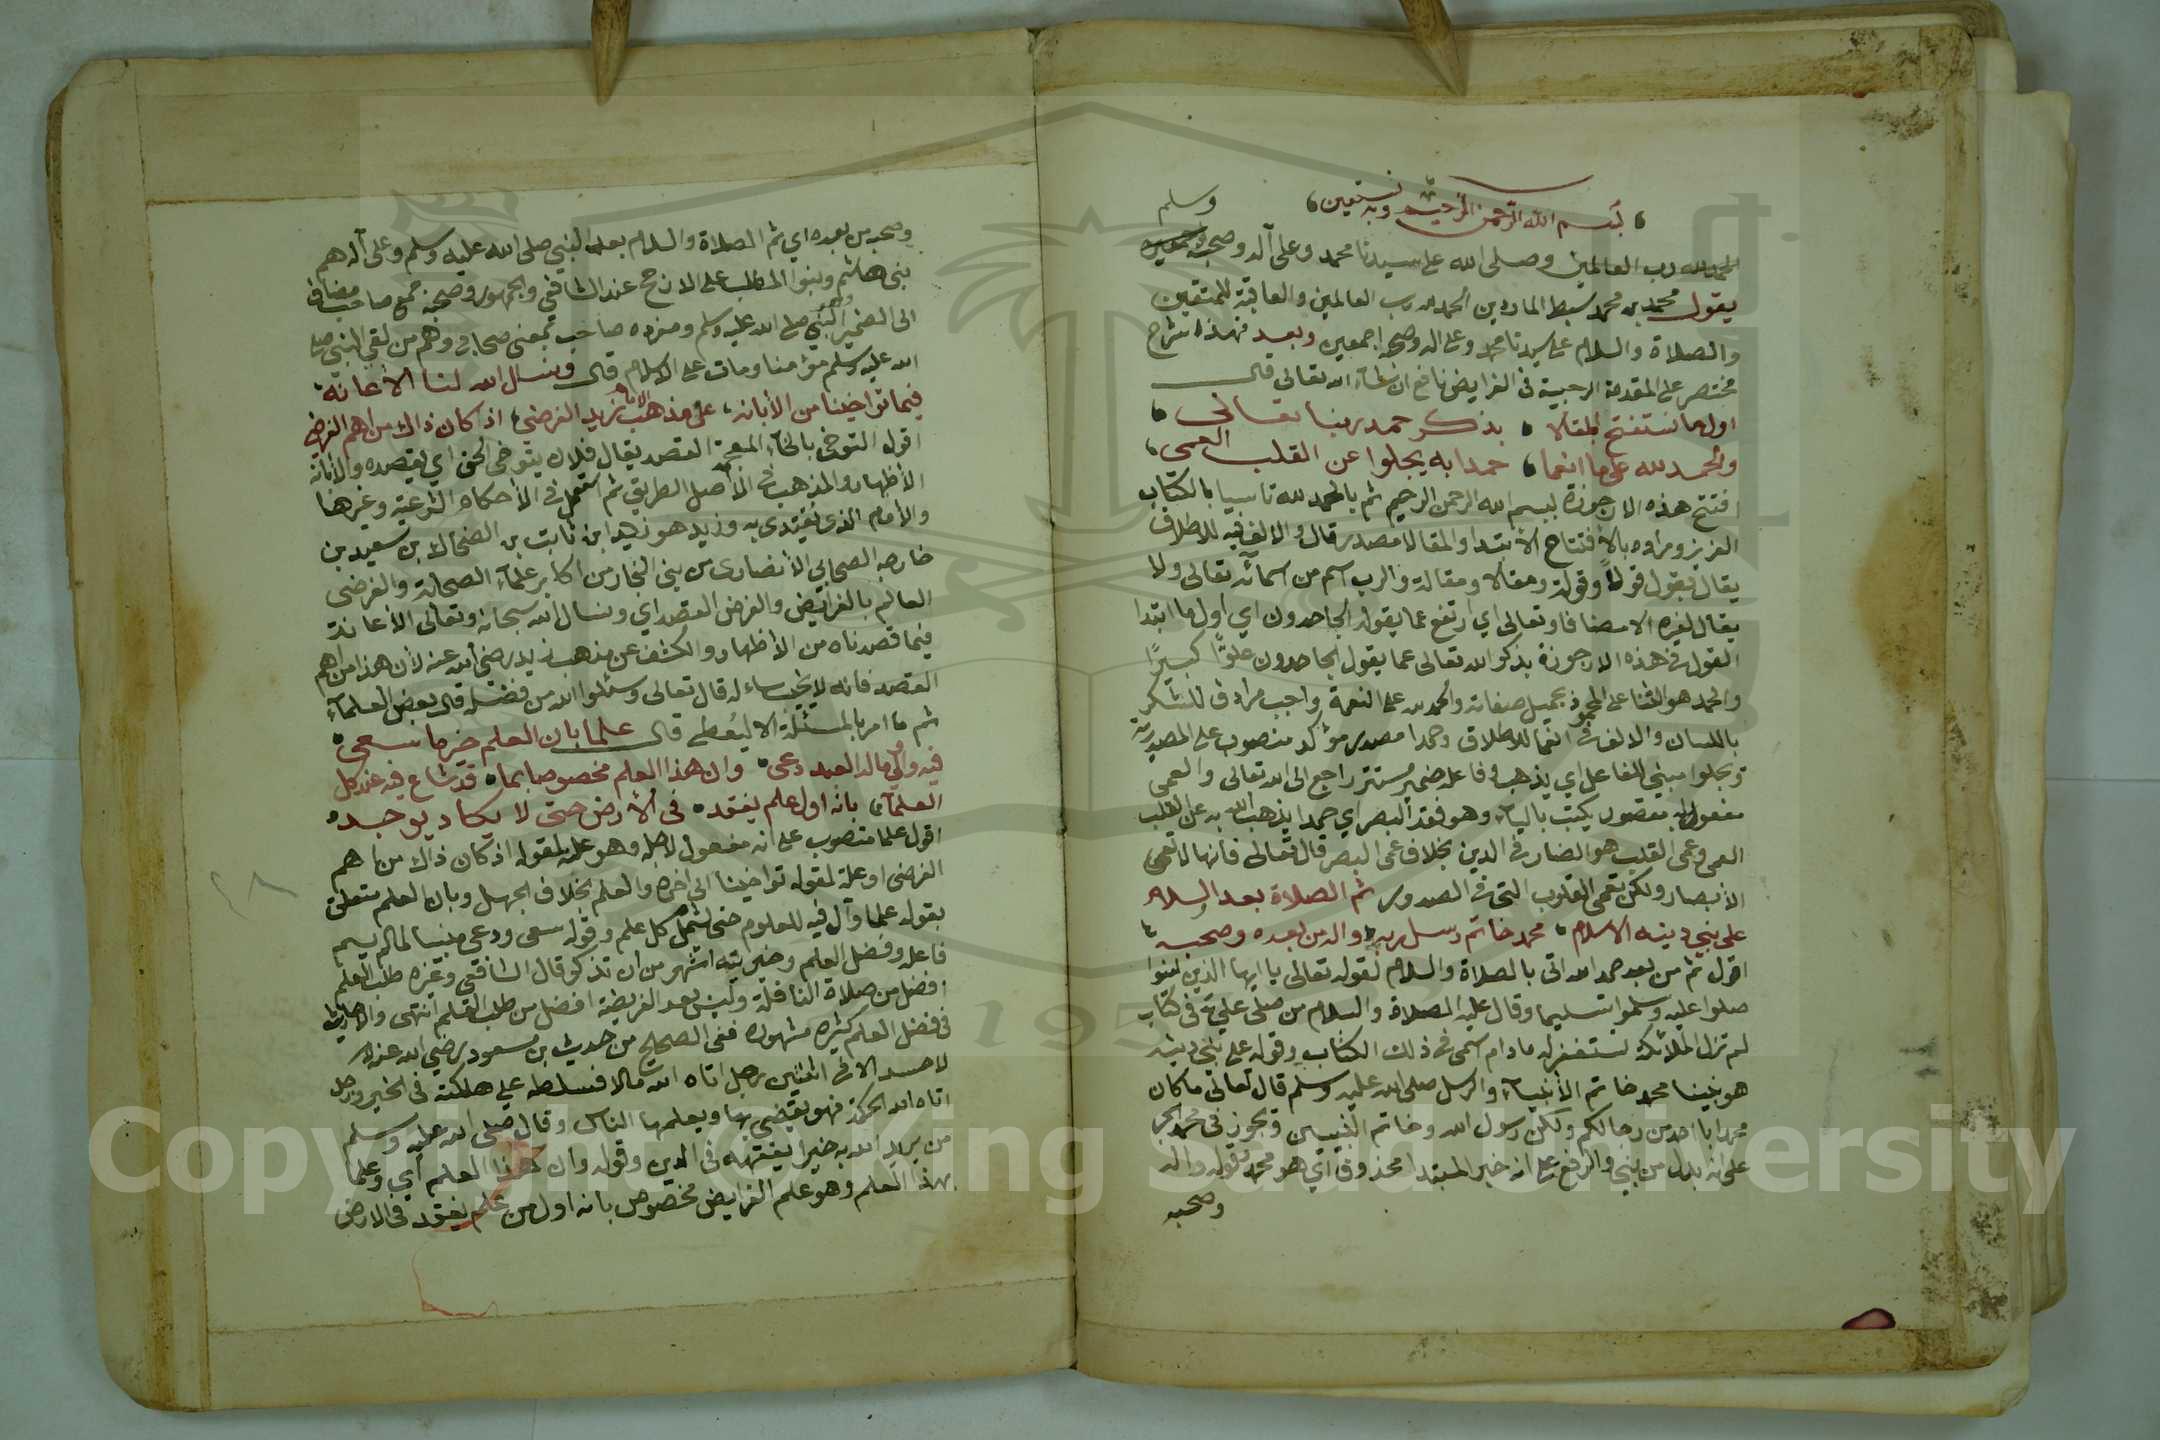 بسم الله الرحمن الرحيم وبه نستعين
وسلم
الحمد لله رب العالمين وصلى الله على سيدنا محمد وعلى آله وصحبه اجمعين
يقول محمد بن محمد سبط المارديني الحمد لله رب العالمين والعاقبة للمتقين
والصلاة والسلام على سيدنا محمد وعلى اله وصحبه اجمعين وبعد فهذا شرح
مختصر على المقدمة الرحبية في الفرايض نافع ان شاء الله تعالى قال
اول ما نستفتح المقالا بذكر حمد ربنا تعالى
والحمد لله على ما انعما حمدا به يجلوا عن القلب العمى
افتتح هذه الارجوزة ببسم الله الرحمن الرحيم ثم بالحمد لله تاسيا بالكتاب
العزيز ومراده بالافتتاح الأبتدا والمقالا مصدر قال والالف فيه للاطلاق
يقال يقول قولاً وقولة ومقالا ومقالة والرب اسم من اسمآئه تعالى ولا
يقال لغيره الا مضافا وتعالى اي ارتفع عما يقوله الجاحدون اي اول ما ابتدا
القول في هذه الارجوزة بذكر الله تعالى عما يقول الجاحدون علوًّا كبيرًا
والحمد هو الثنا على المحمود بجميل صفاته والحمد لله على النعمة واجب مرادف للشكر
باللسان والالف في انعما للاطلاق وحمدا مصدر مؤكد منصوب على المصدرية
ويجلوا مبني للفاعل اي يذهب وفاعله ضمير مستتر راجع الى الله تعالى والعمى
مفعول به مقصور يكتب باليآء وهو فقد البصر اي حمدا يذهب الله به عن القلب
العمى وعمى القلب هو الضار في الدين بخلاف عمى البصر قال تعالى فانها لا تعمى
الأبصار ولكن تعمى القلوب التي في الصدور ثم الصلاة بعد والسلام
على نبي دينه الاسلام محمد خاتم رسل ربه واله من بعده وصحبه
اقول ثم من بعد حمد الله اتى بالصلاة والسلام لقوله تعالى يا ايها الذين امنوا
صلوا عليه وسلموا تسليما وقال عليه الصلاة والسلام من صلى علي في كتاب
لم تزل الملائكة تستغفر له ما دام اسمي في ذلك الكتاب وقوله على نبي دينه
هو نبينا محمد خاتم الأنبيآء والرسل صلى الله عليه وسلم قال تعالى ما كان
محمد ابا احد من رجالكم ولكن رسول الله وخاتم النبيين ويجوز في محمد الجر
على انه بدل من نبي والرفع على انه خبر المبتدا محذوف اي هو محمد وقوله واله
وصحبه
وصحبه من بعده اي ثم الصلاة والسلام بعد النبي صلى الله عليه وسلم وعلى آله هم
بني هاشم وبنو المطلب على الارجح عند الشافعي والجمهور وصحبه جمع صاحب مضاف
الى الضمير النبي صلى الله عليه وسلم ومفرده صاحب بمعنى صحابي وهم من لقي النبي صلى
الله عليه وسلم مؤمنا ومات على الاسلام قال ونسال الله لنا الاعانة
فيما توخينا من الأبانة على مذهب الامام زيد الفرضي اذ كان ذاك من اهم الغرض
اقول التوخي بالخآء المعجمة القصد يقال فلان يتوخى الحق اي يقصده والأبانة
الأظهار والمذهب في الأصل الطريق ثم استعمل في الأحكام الشرعية وغيرها
والأمام الذي يُقتدى به وزيد هو زيد ابن ثابت بن الضحاك بن سعيد بن
خارجه الصحابي الأنصاري من بني النجار من اكابر علمآء الصحابة والفرضي
العالم بالفرايض والغرض القصد اي ونسال الله سبحانه وتعالى الأعانة
فيما قصدناه من الأظهار والكشف عن مذهب زيد رضي الله عنه لأن هذا من اهم
القصد فانه لا يخيب ساءله قال تعالى وسئلوا الله من فضله قال بعض العلمآء
ثم ما امر بالمسئلة الا ليُعطي قال علما بان العلم خير ما سعى
فيه واولى ما له العبد دعى وان هذا العلم مخصوصا بما قد شاع فيه عند كل
العلمآء بانه اول علم يفقد في الأرض حتى لا يكاد يوجد
اقول علما منصوب على انه مفعول لاجله وهو علة لقوله اذ كان ذاك من اهم
الغرض او علة لقوله توخينا الى اخره والعلم بخلاف الجهل وبان العلم متعلق
بقوله علما وآل فيه للعلوم حتى يشمل كل علم وقوله سعى ودعى مبنيا لما لم يسم
فاعله وفضل العلم وخيريته اشهر من ان تذكر قال الشافعي وغيره طلب العلم
افضل من صلاة النافلة وليس بعد الفريضة افضل من طلب العلم انتهى والاحاديث
في فضل العلم كثيره مشهوره ففي الصحيح من حديث بن مسعود رضي الله عنه
لا حسد الا في اثنتين رجل اتاه الله مالا فسلطه على هلكته في الخير ورجل
اتاه الله الحكمة فهو يقضي بها ويعلمها الناس وقال صلى الله عليه وسلم
من يرد الله به خيرا يفقهه في الدين وقوله وان هذا العلم اي وعلما
بهذا العلم وهو علم الفرايض مخصوص بانه اول من علم يفقد في الارض
Copyright © King Saud University